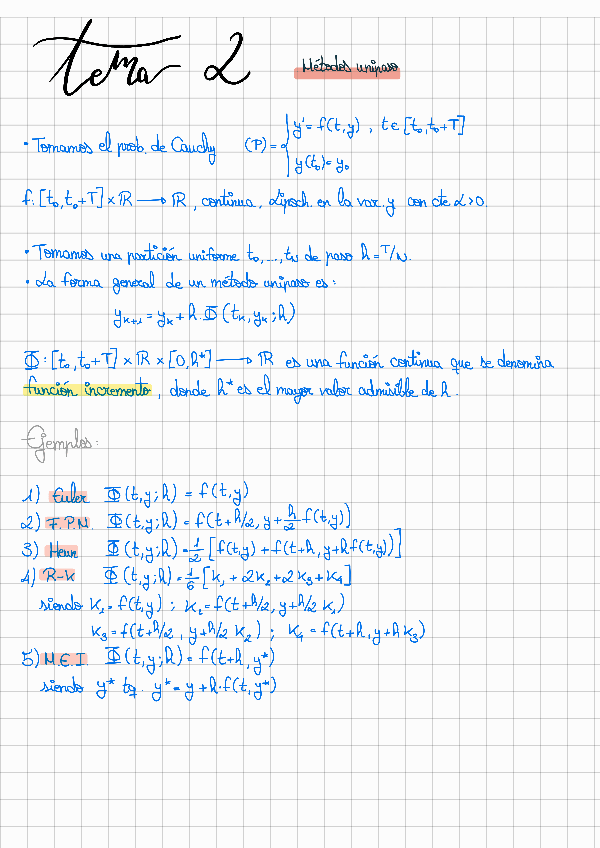 Tema 2
Métodos unipaso
• Tomamos el prob. de Cauchy (P) = { y' = f(t,y) , t ∈ [t₀, t₀+T]
y(t₀) = y₀
f: [t₀, t₀+T] × ℝ ⟶ ℝ , continua, Lipsch. en la var. y con cte L>0.
• Tomamos una partición uniforme t₀, ..., t_N de paso h = T/N.
• La forma general de un método unipaso es:
y_{k+1} = y_k + h·Φ(t_k, y_k; h)
Φ: [t₀, t₀+T] × ℝ × [0, h*] ⟶ ℝ es una función continua que se denomina
función incremento, donde h* es el mayor valor admisible de h.
Ejemplos:
1) Euler Φ(t,y;h) = f(t,y)
2) F.P.M. Φ(t,y;h) = f(t+h/2, y+h/2 f(t,y))
3) Heun Φ(t,y;h) = 1/2 [f(t,y) + f(t+h, y+hf(t,y))]
4) R-K Φ(t,y;h) = 1/6 [K₁ + 2K₂ + 2K₃ + K₄]
siendo K₁ = f(t,y) ; K₂ = f(t+h/2, y+h/2 K₁)
K₃ = f(t+h/2, y+h/2 K₂) ; K₄ = f(t+h, y+h K₃)
5) M.E.I. Φ(t,y;h) = f(t+h, y*)
siendo y* tq. y* = y + h·f(t, y*)